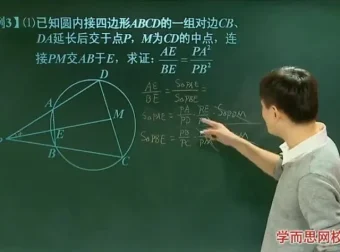 例3】(1)已知圆内接四边形ABCD的一组对边CB、
DA延长后交于点P，M为CD的中点，连
接PM交AB于E，求证：AE/BE = PA²/PB²
D
A
M
P
E
B
C
AE/BE = S△PAE/S△PBE =
S△PAE = PA/PD · PE/
S△PDM
S△PBE = PB/PC ·
学而思网校